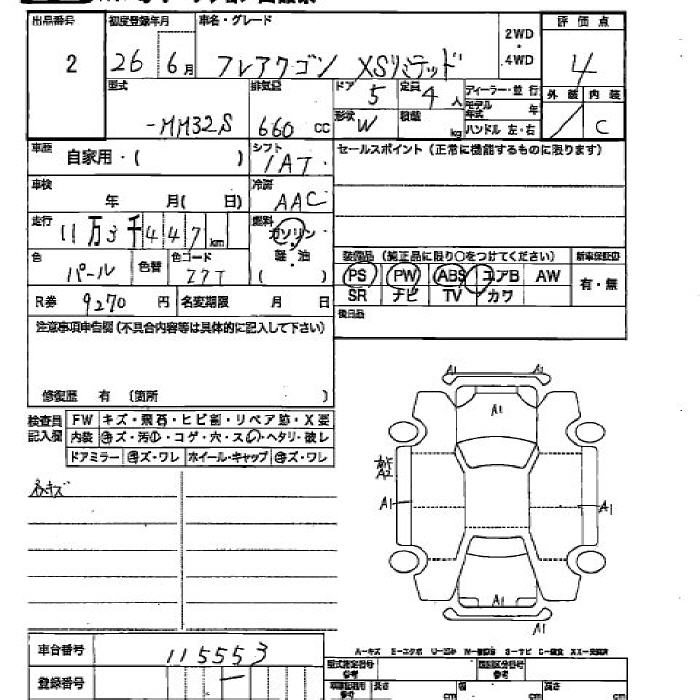 出品番号 初度登録年月 車名・グレード 2WD ・ 4WD 評価点
2 26 6月 フレアワゴン XSリミテッド 4
型式 排気量 ドア 5 定員 4人 ディーラー・並行 外装 内装
-MM32S 660 CC 形状 W 積載 kg モデル年式 年 C
ハンドル 左・右
車歴 自家用・( ) シフト IAT セールスポイント (正常に機能するものに限ります)
車検 年 月( 日) 冷房 AAC
走行 11万3千447km 燃料 ガソリン・軽油 ( )
装備品 (純正品に限り○をつけてください) 新車保証書
色 パール 色替 色コード Z7T PS PW ABS エアB AW 有・無
R券 9270円 名変期限 月 日 SR ナビ TV カワ
注意事項申告欄 (不具合内容等は具体的に記入して下さい) 後日品
修復歴 有 (箇所 )
検査員記入欄 FW キズ・飛石・ヒビ割・リペア跡・X要
内装 キズ・汚れ・コゲ・穴・スレ・ヘタリ・破レ
ドアミラー キズ・ワレ ホイール・キャップ キズ・ワレ
A1
A1
A2
A1 A1
A1
A1
車台番号 115553
A-キズ E-エクボ
登録番号
型式指定番号 参考 類別区分番号 参考
長さ cm 幅 cm 高さ cm